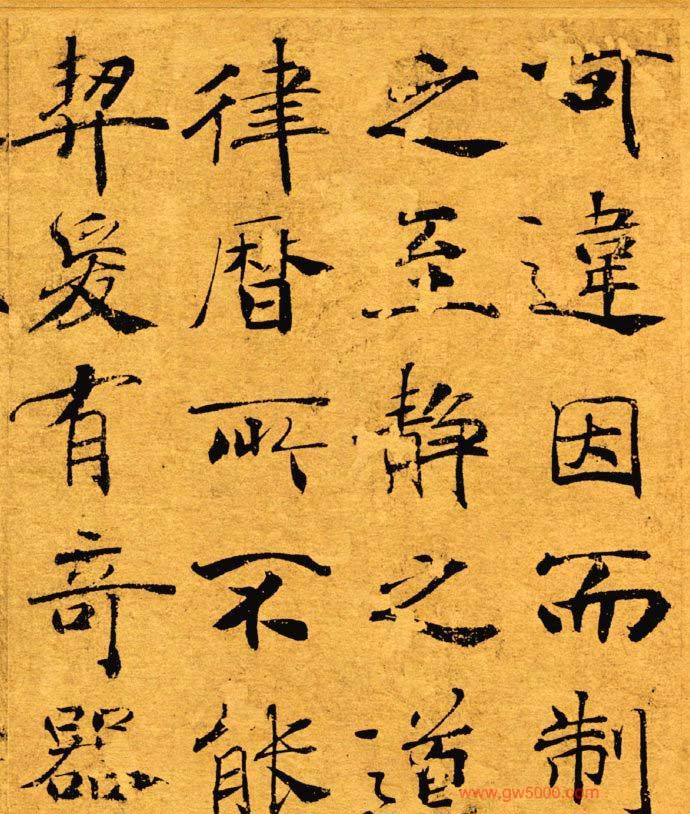 可違因而制
之至静之道
律曆所不能
契爰有奇器
www.gw5000.com